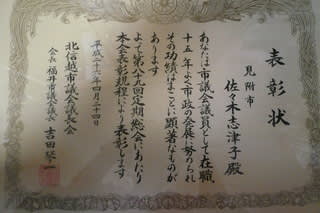 表彰状
見附市
佐々木志津子殿
あなたは市議会議員として在職
十五年よく市政の発展に努められ
その功績はまことに顕著なものが
あります
よって第八十九回定期総会にあたり
本会表彰規程により表彰します
平成二十六年四月二十四日
北信越市議会議長会
会長 福井市議会議長 吉田琴一